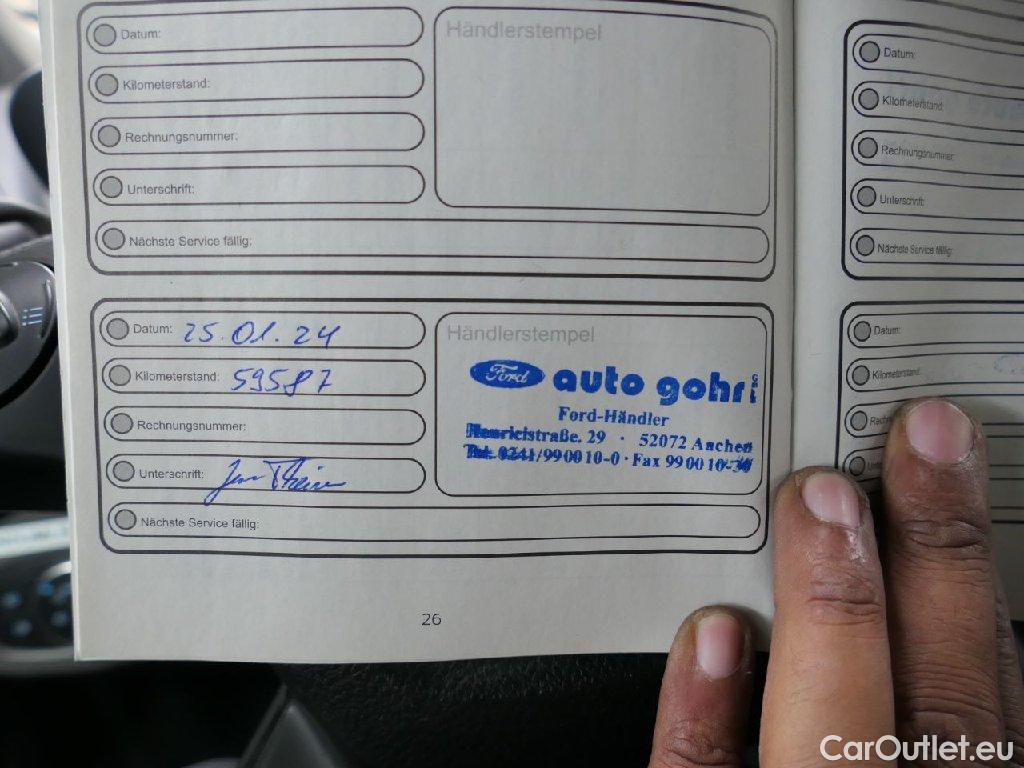 Datum:
Kilometerstand:
Rechnungsnummer:
Unterschrift:
Nächste Service fällig:
Händlerstempel
Datum: 25.01.24
Kilometerstand: 59587
Rechnungsnummer:
Unterschrift:
Nächste Service fällig:
Händlerstempel
Ford auto gohr
Ford-Händler
Henricistraße. 29 · 52072 Aachen
Tel. 0241/990010-0 · Fax 990010-30
26
Datum:
Kilometerstand:
Rechnungsnummer:
Unterschrift:
Nächste Service fällig:
Datum:
Kilometerstand:
CarOutlet.eu